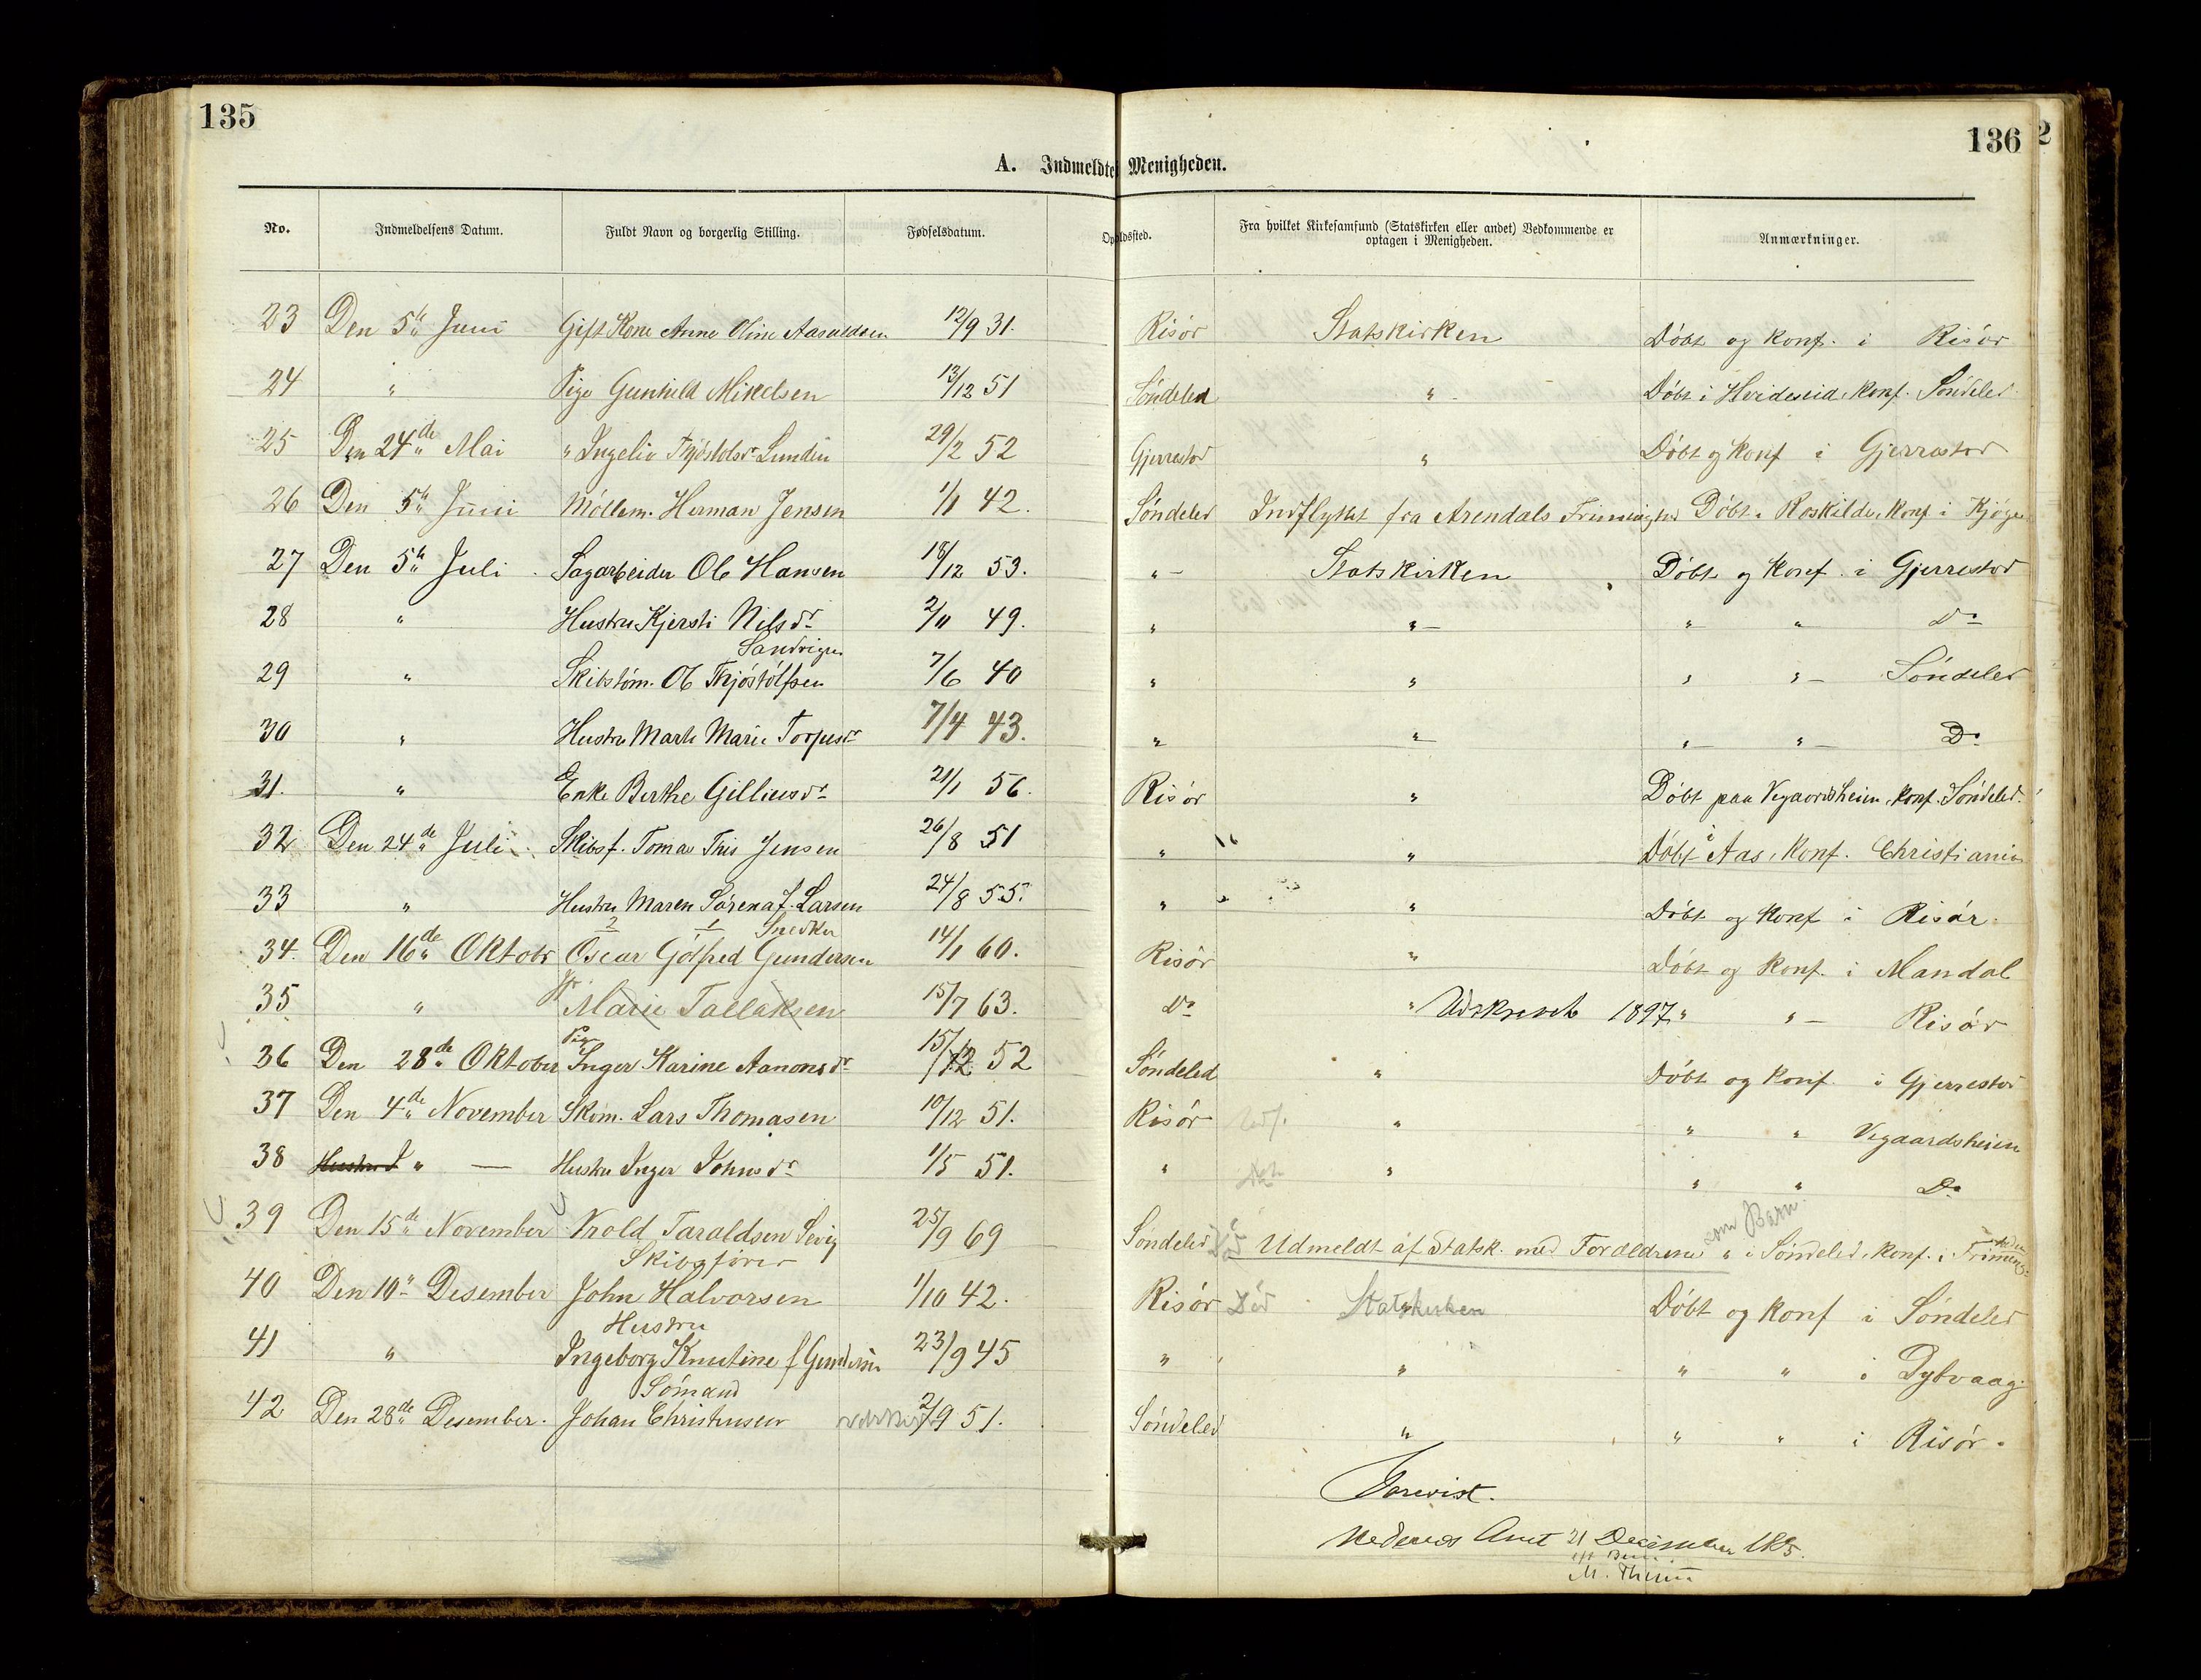 135
136
2
A. Indmeldte i Menigheden.
No. Indmeldelsens Datum. Fuldt Navn og borgerlig Stilling. Fødselsdatum. Opholdssted. Fra hvilket Kirkesamfund (Statskirken eller andet) Vedkommende er optagen i Menigheden. Anmærkninger.
23 Den 5te Juni Gift Kone Anne Oline Aasuldsen 12/9 31. Risør Statskirken Døbt og konf. i Risør
24 " Pige Gunhild Mikelsen 13/12 51 Søndeled " Døbt i Hvideseid, konf. Søndeled
25 Den 24de Mai " Ingeliv Lunden 29/2 52 Gjerrestad " Døbt og konf i Gjerrestad
26 Den 5te Juni Møllem. Herman Jensen 1/1 42. Søndeled Indflyttet fra Arendals Frimenighed Døbt i Roskilde, konf i Kjøge
27 Den 5te Juli Sagarbeider Ole Hansen 18/12 53. " Statskirken Døbt og konf. i Gjerrestad
28 " Hustru Kjersti Nilsdr 2/11 49. " " " " Do
Sandvigen
29 " Skibstøm. Ole Thjøstølfsen 7/6 40 " " " " Søndeled
30 " Hustru Marte Marie Torjusdr 7/4 43. " " " " Do
31. " Enke Berthe Gilliusdr 21/1 56. Risør " Døbt paa Vegaardsheien, konf. Søndeled.
32 Den 24de Juli Skibsf. Tomas Jensen 26/8 51 " " Døbt i Aas, konf. Christiania
33 " Hustru Maren Sørena f. Larsen 24/8 55. " " Døbt og konf i Risør
2 1 Snedker
34. Den 16de Oktobr Oscar Gotfred Gundersen 14/1 60. Risør " Døbt og konf. i Mandal
35 " Marie Tallaksen 15/7 63. Do " Udskrevet 1897 " " Risør
Pige
36 Den 28de Oktober Inger Karine Aanonsdr 15/12 52 Søndeled " Døbt og konf i Gjerrestad
37 Den 4de November Skom. Lars Thomasen 10/12 51. Risør " " " Vegaardsheien
38 Hustru I " — Hustru Inger Johnsdr 1/5 51. " " " " Do
39 Den 15de November Vrold Taraldsen Sevig 25/9 69 Søndeled Død Udmeldt af Statsk. med Forældrene som Barn " i Søndeled, konf. i Frimenigheden
Skibsfører
40 Den 10de Desember John Halvorsen 1/10 42. Risør Død Statskirken Døbt og konf i Søndeled
Hustru
41 " Ingeborg Knutine f Gundersen 23/9 45 " " " " i Dybvaag
Sømand
42 Den 28de Desember. Johan Christensen udskrevet 2/9 51. Søndeled " " " i Risør.
Forevist.
Nedenes Amt 21 December 1885.